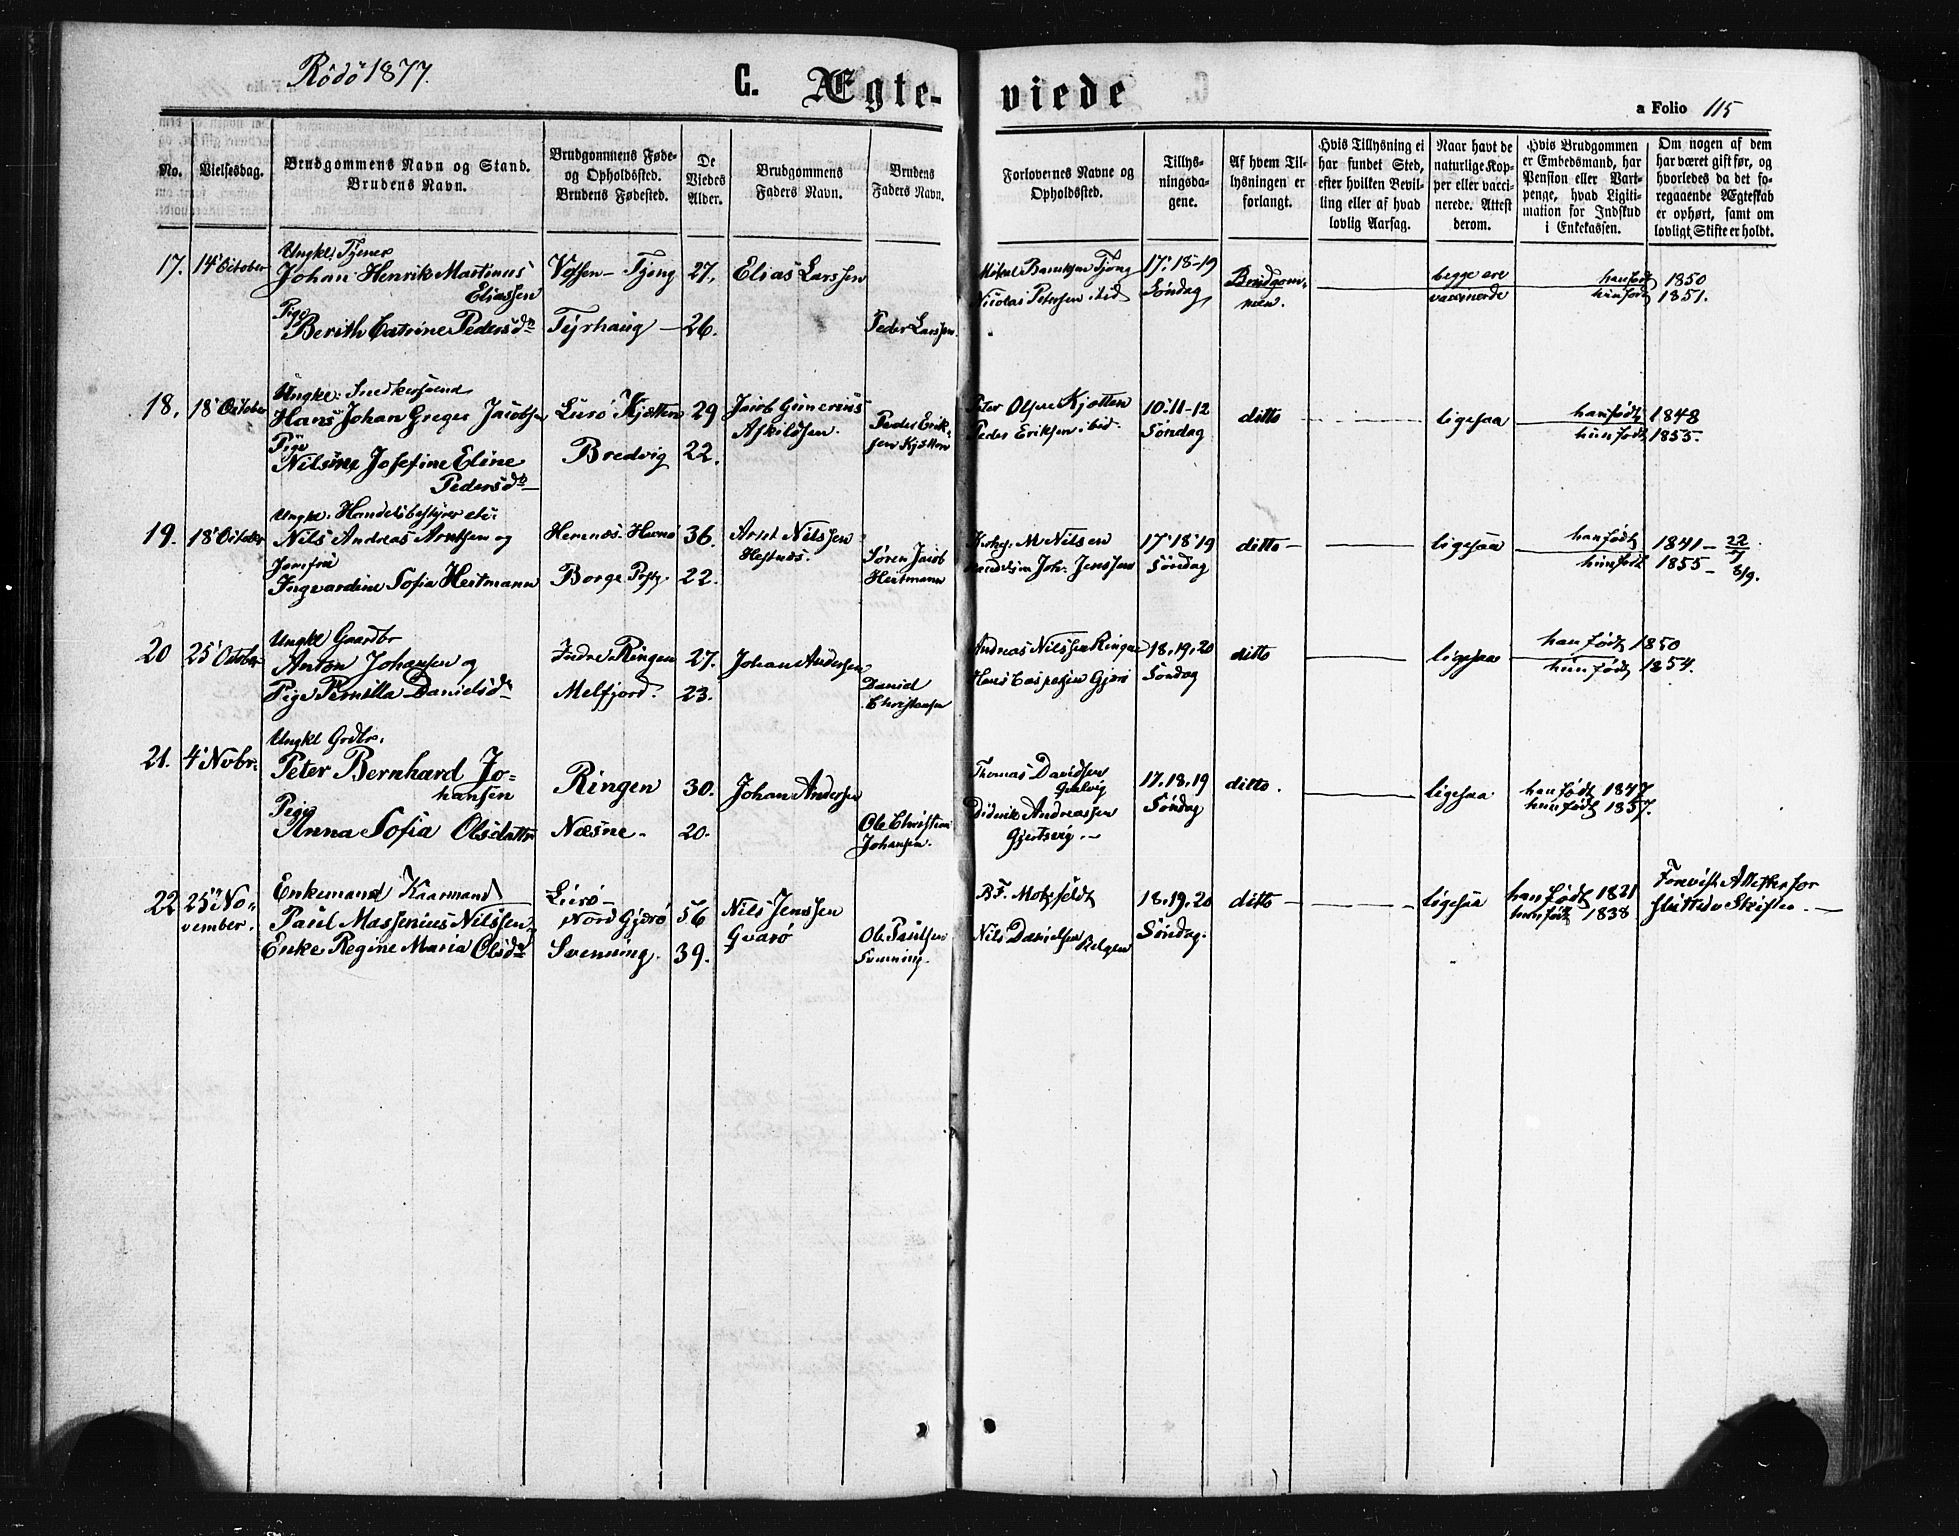 Rödö 1877.
C. Ægte-
viede
a Folio 115
No.
Vielsesdag.
Brudgommens Navn og Stand.
Brudens Navn.
Brudgommens Føde-
og Opholdssted.
Brudens Fødested.
De
Viedes
Alder.
Brudgommens
Faders Navn.
Brudens
Faders Navn.
Forlovernes Navne og
Opholdssted.
Tillys-
ningsda-
gene.
Af hvem Til-
lysningen er
forlangt.
Hvis Tillysning ei
har fundet Sted,
efter hvilken Bevil-
ling eller af hvad
lovlig Aarsag.
Naar havt de
naturlige Kop-
per eller vacci-
nerede. Attest
derom.
Hvis Brudgommen
er Embedsmand, har
Pension eller Vart-
penge, hvad Ligiti-
mation for Indskud
i Enkekassen.
Om nogen af dem
har været gift før, og
hvorledes da det fo-
regaaende Ægteskab
er ophørt, samt om
lovligt Skifte er holdt.
17. 14 October
Ungkl. Tjener
Johan Henrik Martinus
Eliassen
Pige
Berith Catrine Pedersdr
Tjong
Tyrhaug
27.
26.
Elias Larssen
Peder Larssen
Tjong
Nicolai Petersen ibid
17. 18-19
Søndag
Brudgom-
men.
begge ere
vaccinerede
han født 1850
hun født 1851.
18. 18 October
Ungkl. Snedkersvend
Hans Johan Greger Jacobsen
Pige
Nilsine Josefine Eline
Pedersdr
Lurö Kjøtten
Bredvig
29
22.
Jacob
Askildsen.
Peder Erik-
sen Kjøtten
Peter Olsen Kjøtten
Peder Eriksen ibid.
10-11-12
Søndag
ditto
ligesaa
han født 1848
hun født 1855.
19. 18 October
Ungkl. Handelsbestyrer etc.
Nils Andreas Arntsen og
Jomfru
Ingvardine Sofia Heitmann
Borge
36.
22.
Arnt Nilssen
Hestnæs.
Søren Jacob
Heitmann
M Nilsen
Joh. Jenssen
17 18 19
Søndag
ditto
ligesaa
han født 1841 - 22/7
hun født 1855 - 8/9.
20 25 October
Ungkl Gaardbr
Anton Johansen og
Pige Pernilla Danielsdr
Indre Ringen
Melfjord.
27.
23.
Johan Andersen
Daniel
Christensen
Andreas Nilssen Ringen
Hans Caspersen Gjerö
18, 19, 20
Søndag
ditto
ligesaa
han født 1850
hun født 1854.
21. 4 Novbr.
Ungkl Grdbr.
Peter Bernhard Jo-
hansen
Pige
Anna Sofia Olsdatter
Ringen
Næsne.
30.
20.
Johan Andersen
Ole Christian
Johansen.
Thomas Davidsen
Diderik Andreassen
Gjertsvig.
17. 18. 19
Søndag
ditto.
ligesaa
han født 1847
hun født 1857.
22 25 No-
vember.
Enkemand Kaarmand
Paul Massenius Nilssen
Enke Regine Maria Olsdr
Lurö
Nord Gjerö
Svenning.
56
39.
Nils Jenssen
Gvarö
Ole Paulsen
Svenning.
B.F. Motzfeldt
Nils Danielsen Selgen
18, 19, 20
Søndag.
ditto
ligesaa
han født 1821
hun født 1838
Forevist Attester for
sluttede Skifter.